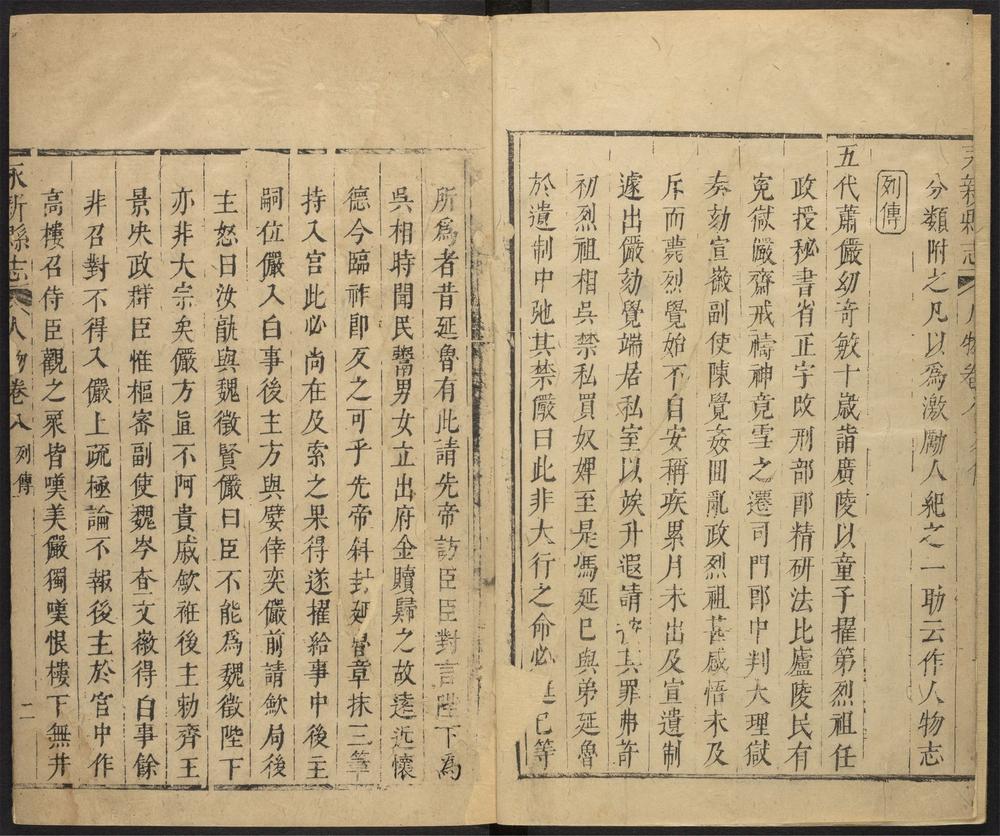 分類附之凡以為激勵人紀之一助云作人物志
列傳
五代蕭儼幼奇敏十歲詣廣陵以童子擢第烈祖任
政授秘書省正字改刑部郎精研法比廬陵民有
冤獄儼齋戒禱神竟雪之遷司門郎中判大理獄
奏劾宣徽副使陳覺姦回亂政烈祖甚感悟未及
斥而薨烈覺始不自安稱疾累月未出及宣遺制
遽出儼劾覺端居私室以俟升遐請 其罪弗許
初烈祖相吳禁私買奴婢至是馮延巳與弟延魯
於遺制中弛其禁儼曰此非大行之命必延巳等
所為者昔延魯有此請先帝訪臣臣對言陛下為
吳相時聞民鬻男女立出府金贖歸之故遠近懷
德今臨祚即反之可乎先帝斜封延魯章抹三筆
持入宮此必尚在及索之果得遂擢給事中後主
嗣位儼入白事後主方與嬖倖奕儼前請斂局後
主怒曰汝孰與魏徵賢儼曰臣不能為魏徵陛下
亦非大宗矣儼方直不阿貴戚斂袵後主勑齊王
景決政群臣惟樞密副使魏岑查文徽得白事餘
非召對不得入儼上疏極論不報後主於宮中作
高樓召侍臣觀之眾皆嘆美儼獨嘆恨樓下無井
永新縣志 人物卷八 列傳 二